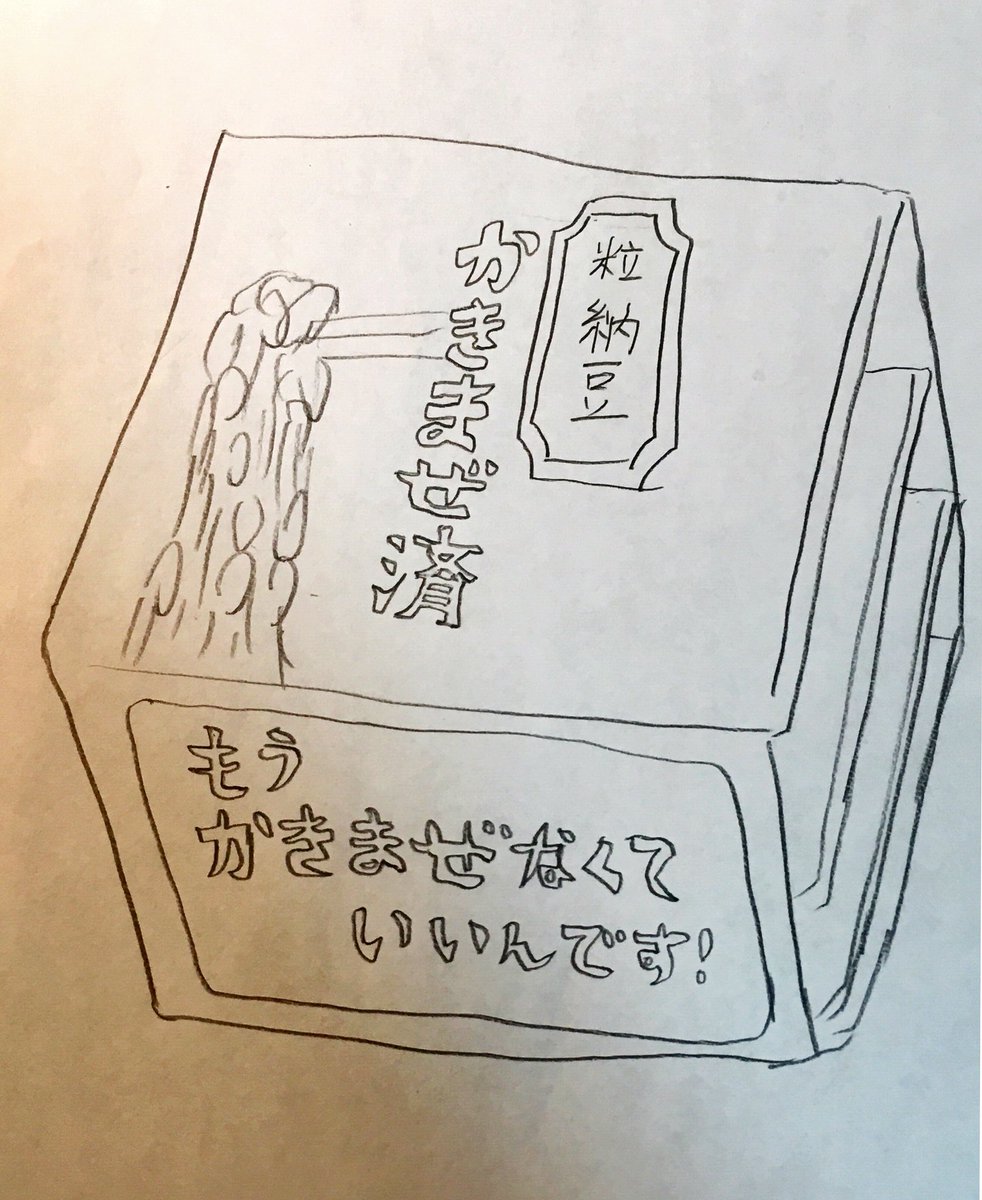 粒納豆
かきまぜ済
もう
かきまぜなくて
いいんです!